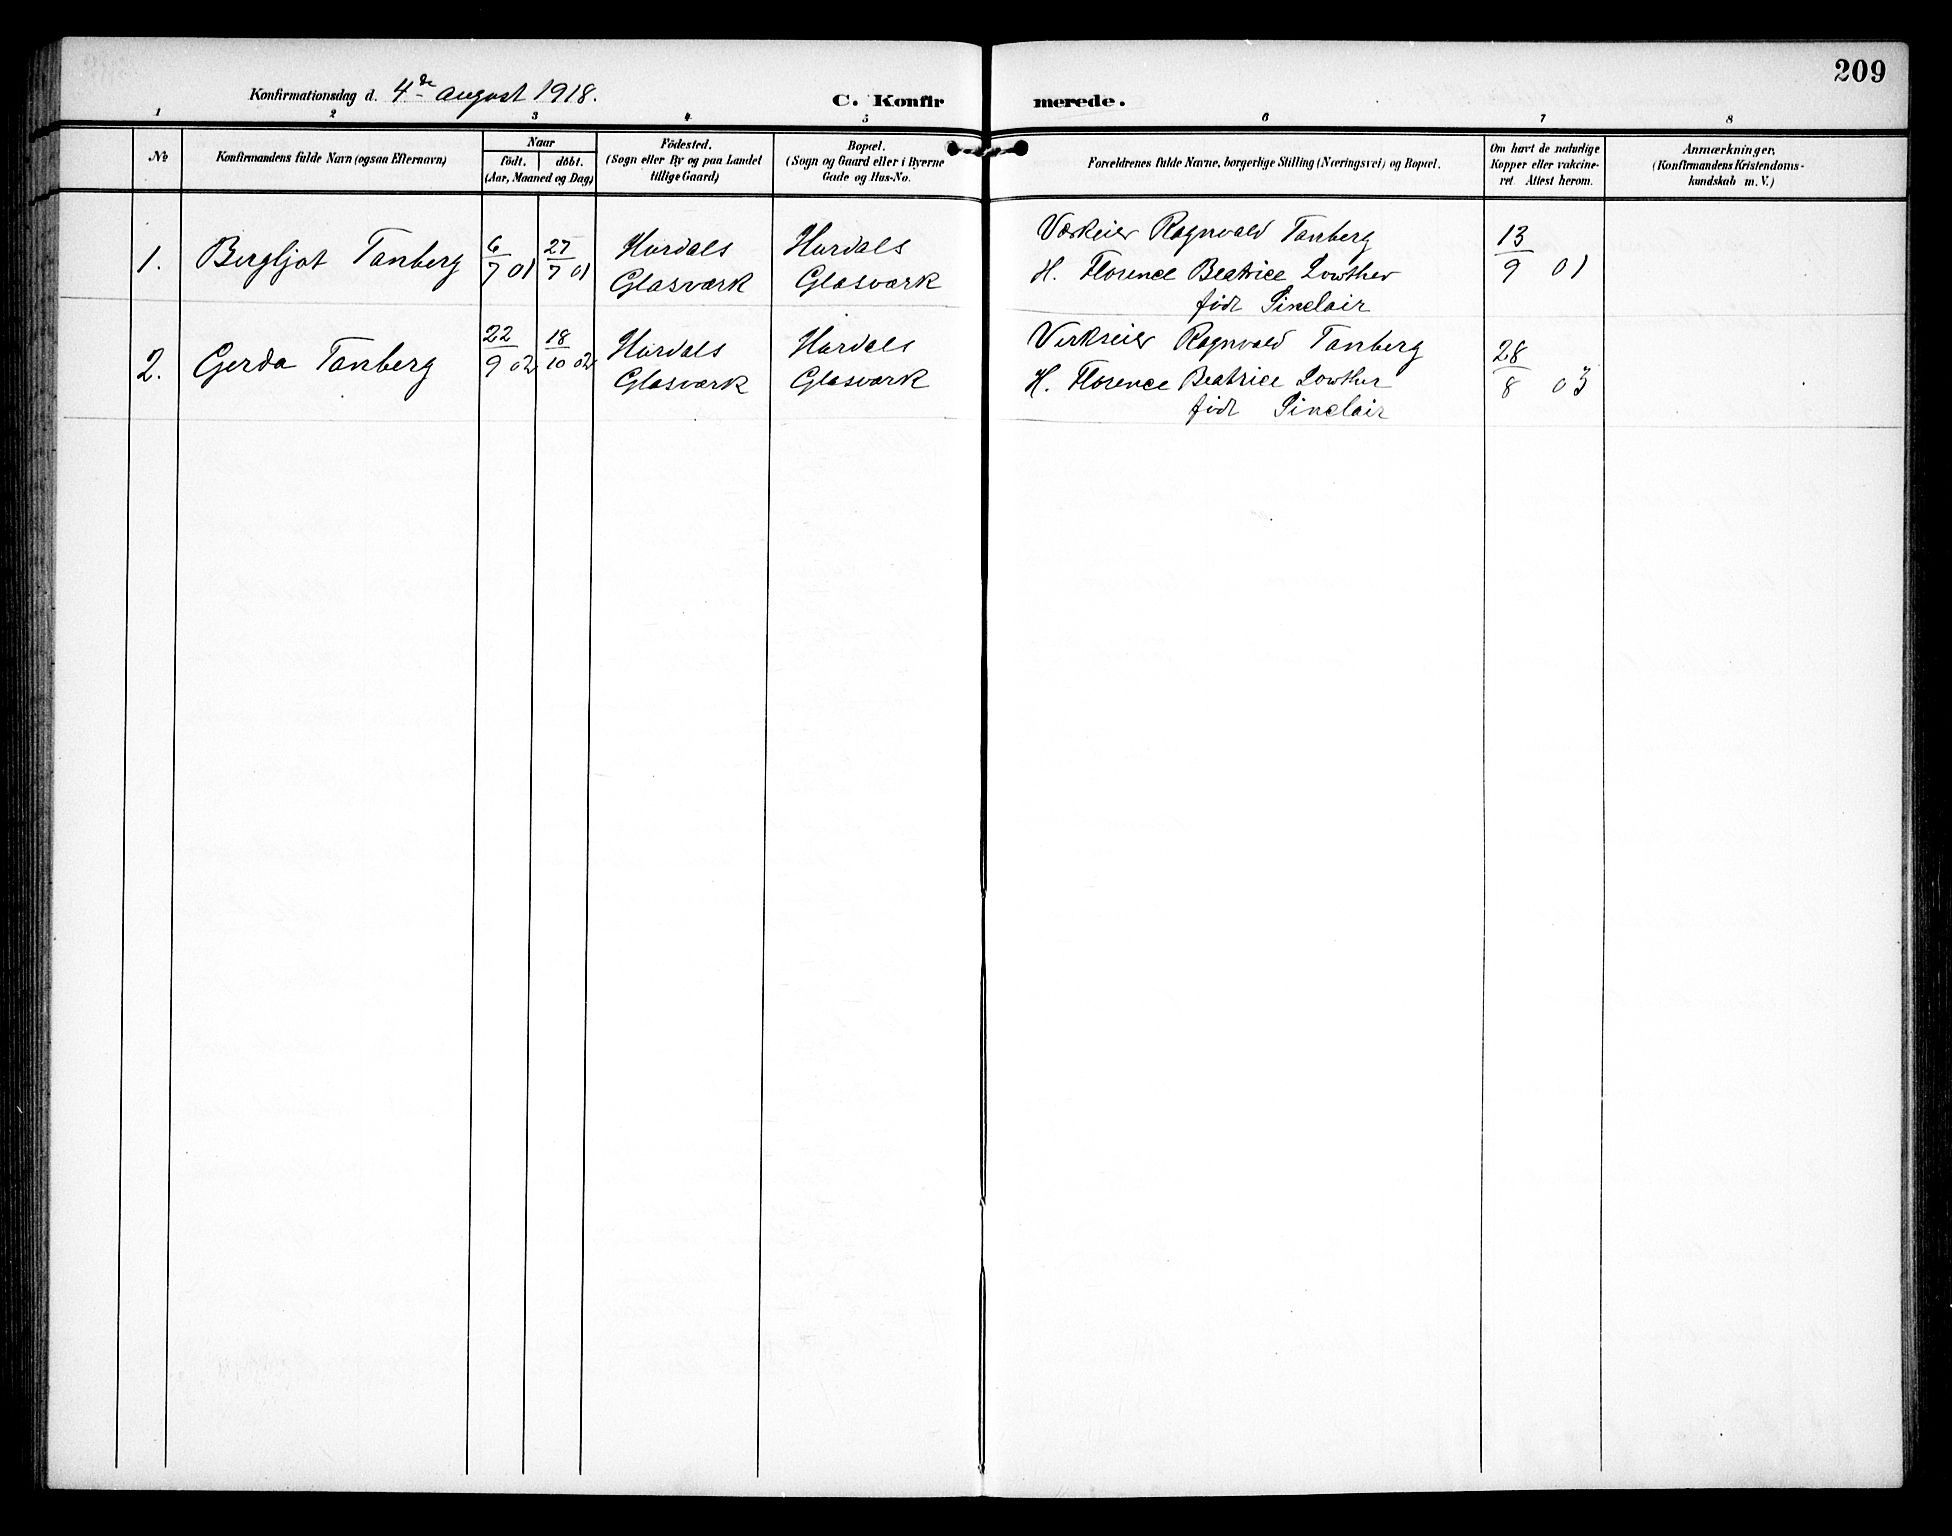 209
Konfirmationsdag d. 4de august 1918.
C. Konfirmerede.
1 2 3 4 5 6 7 8
No
Konfirmandens fulde Navn (ogsaa Efternavn)
Naar
födt. döbt.
(Aar, Maaned og Dag)
Födested.
(Sogn eller By og paa Landet
tillige Gaard)
Bopæl.
(Sogn og Gaard eller i Byerne
Gade og Hus-No.
Forældrenes fulde Navne, borgerlige Stilling (Næringsvei) og Bopæl.
Om havt de naturlige
Kopper eller vakcine-
ret. Attest herom.
Anmærkninger,
(Konfirmandens Kristendoms-
kundskab m. V.)
1. Bergljot Tanberg 6/7 01 27/7 01
Hurdals
Glasværk
Hurdals
Glasværk
Værkeier Ragnvald Tanberg
H. Florence Beatrice Lowther
født Sinclair
13/9 01
2. Gerda Tanberg 22/9 02 18/10 02
Hurdals
Glasværk
Hurdals
Glasværk
Verkseier Ragnvald Tanberg
H. Florence Beatrice Lowther
født Sinclair
28/8 03